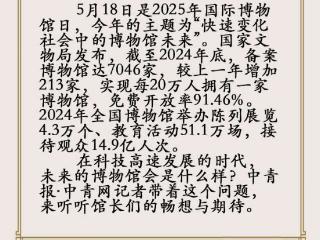 5月18日是2025年国际博物
馆日，今年的主题为“快速变化
社会中的博物馆未来”。国家文
物局发布，截至2024年底，备案
博物馆达7046家，较上一年增加
213家，实现每20万人拥有一家
博物馆，免费开放率91.46%。
2024年全国博物馆举办陈列展览
4.3万个、教育活动51.1万场，接
待观众14.9亿人次。
在科技高速发展的时代，
未来的博物馆会是什么样？中青
报·中青网记者带着这个问题，
来听听馆长们的畅想与期待。